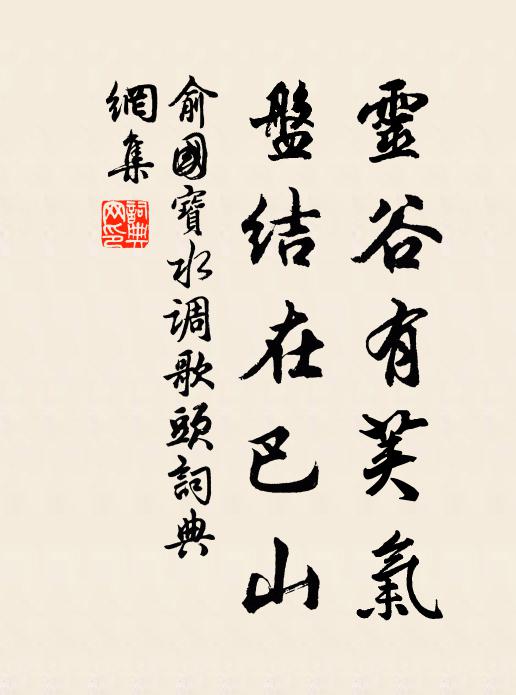 靈谷有英氣
盤結在巴山
俞國寶水调歌頭詞典
網集
詞典
网印